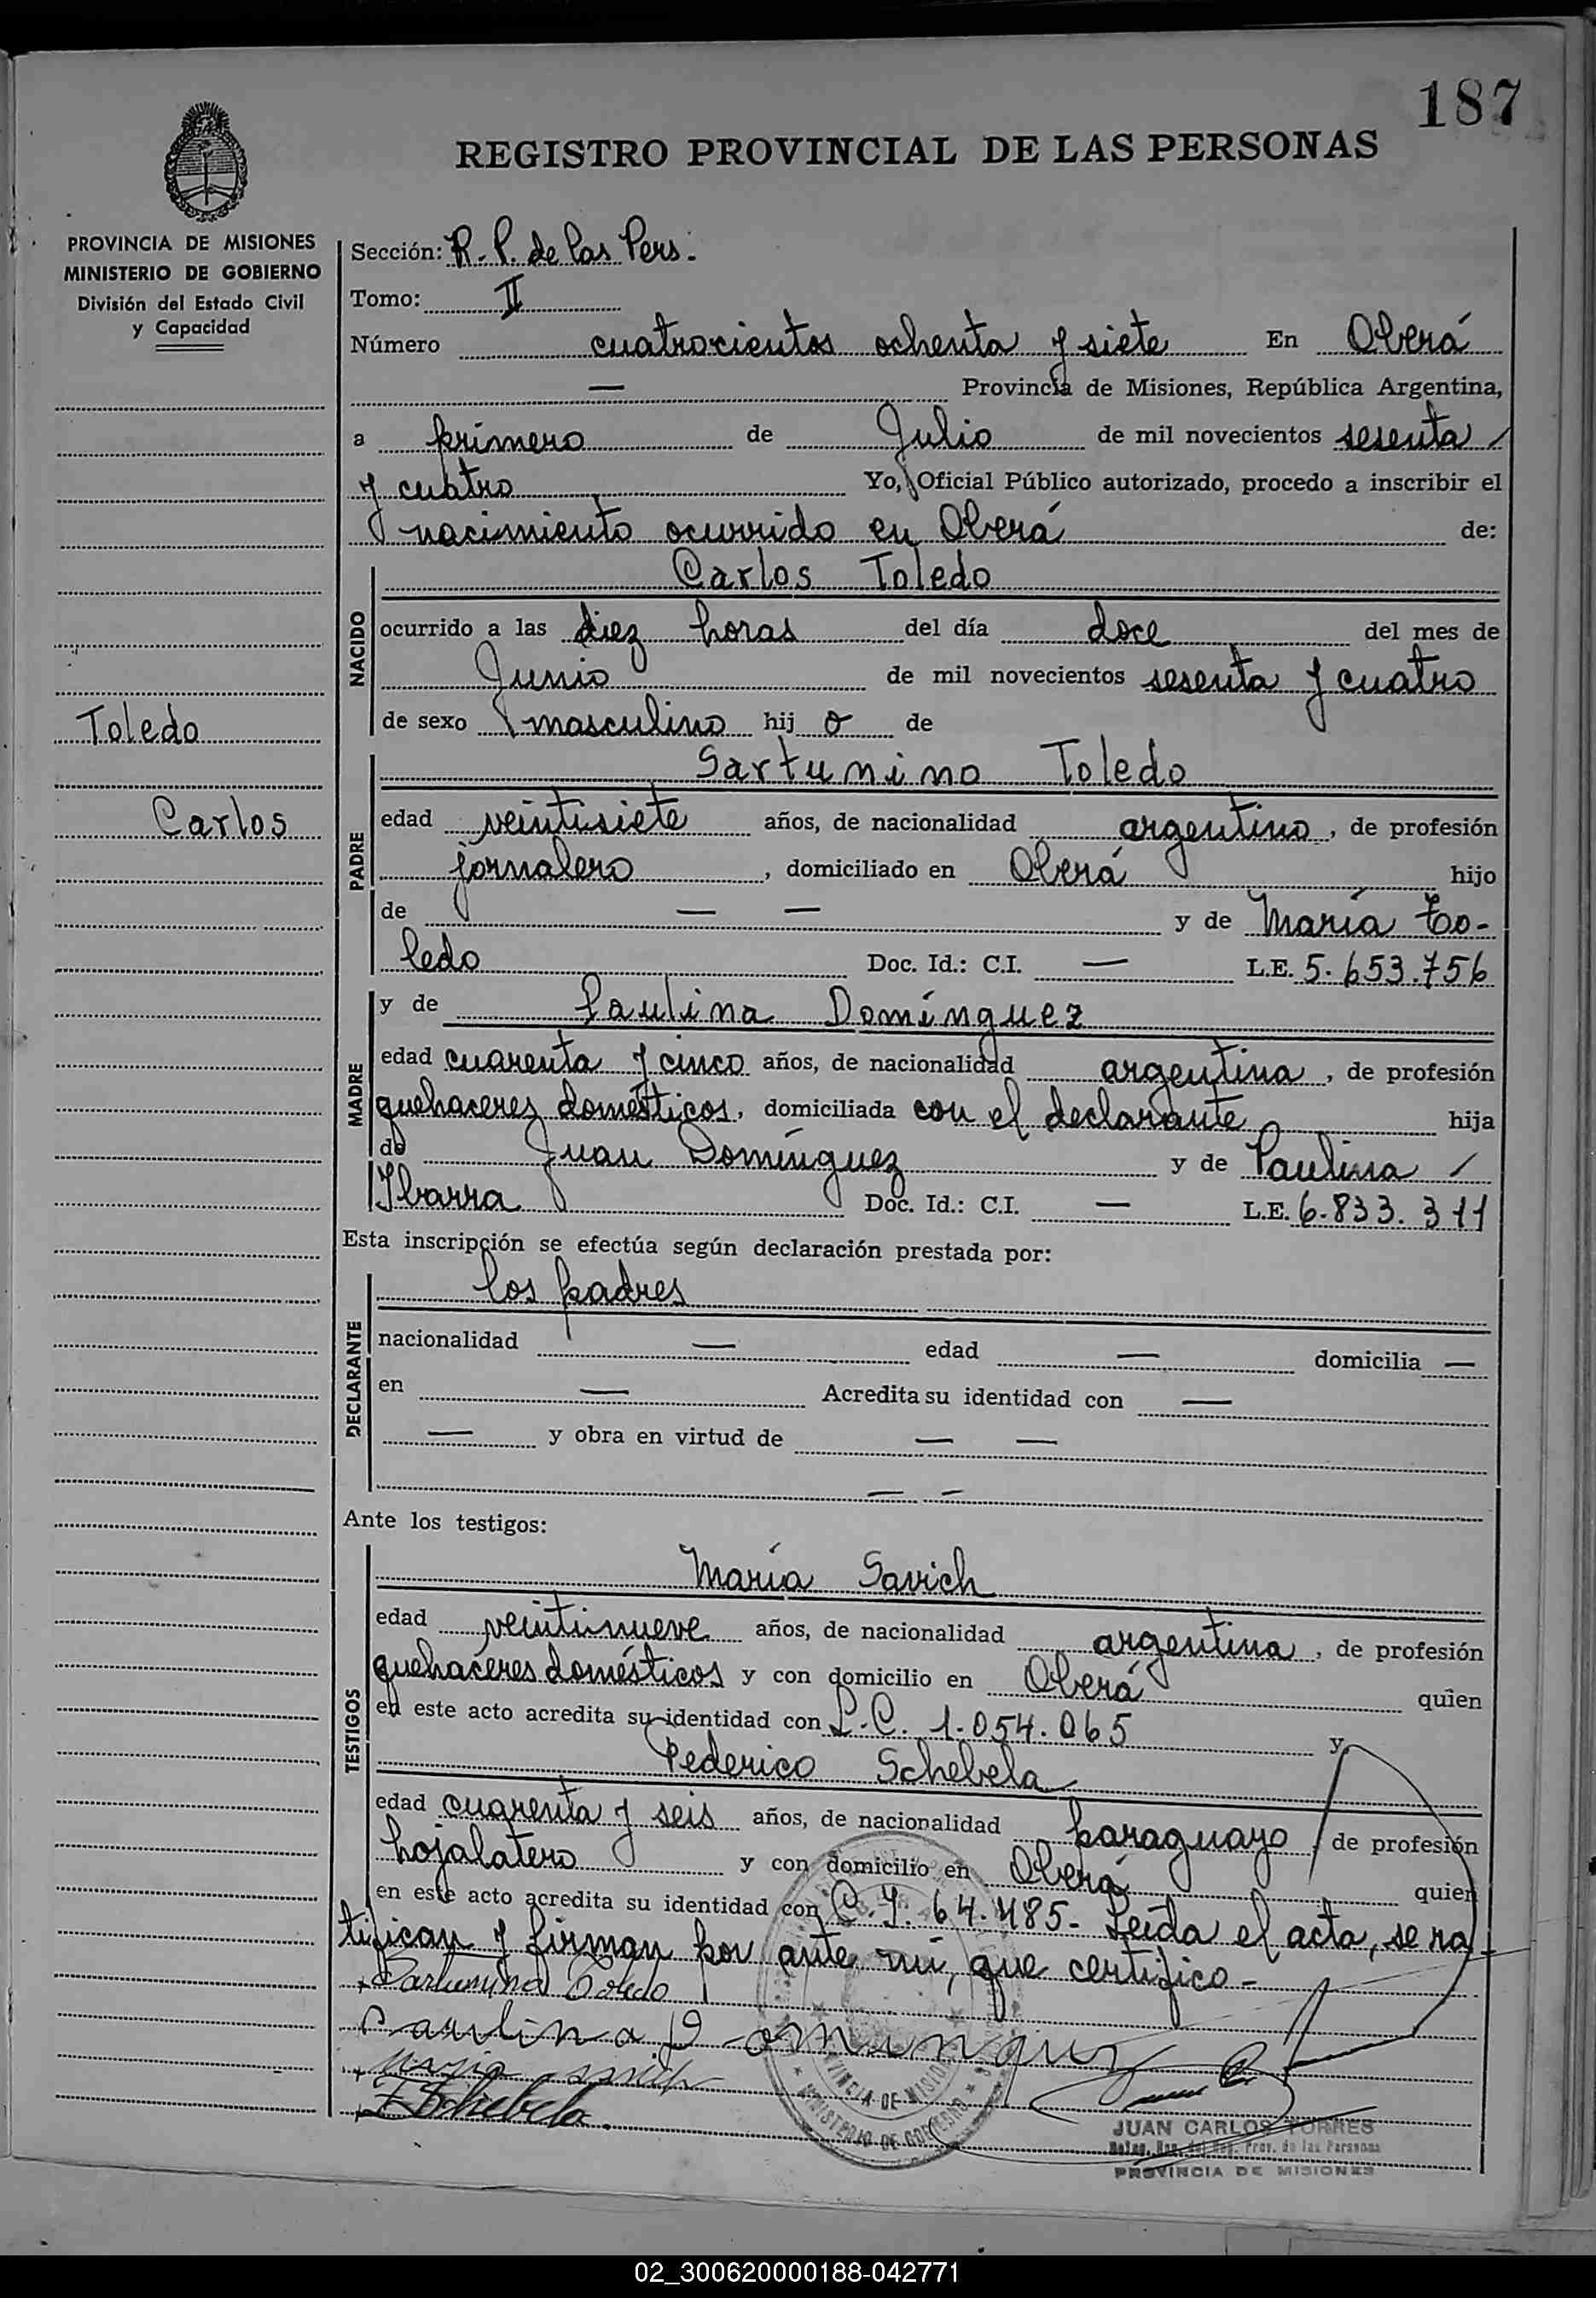 187
REGISTRO PROVINCIAL DE LAS PERSONAS
PROVINCIA DE MISIONES
MINISTERIO DE GOBIERNO
División del Estado Civil
y Capacidad
Toledo
Carlos
Sección: R. P. de las Pers.
Tomo: II
Número cuatrocientos ochenta y siete En Oberá
— Provincia de Misiones, República Argentina,
a primero de Julio de mil novecientos sesenta
y cuatro Yo, Oficial Público autorizado, procedo a inscribir el
nacimiento ocurrido en Oberá de:
NACIDO
Carlos Toledo
ocurrido a las diez horas del día doce del mes de
Junio de mil novecientos sesenta y cuatro
de sexo masculino hij o de
PADRE
Sartunino Toledo
edad veintisiete años, de nacionalidad argentino, de profesión
jornalero, domiciliado en Oberá hijo
de — — y de María To-
ledo Doc. Id.: C.I. — L.E. 5.653.756
MADRE
y de Paulina Domínguez
edad cuarenta y cinco años, de nacionalidad argentina, de profesión
quehaceres domésticos, domiciliada con el declarante hija
de Juan Domínguez y de Paulina
Ibarra Doc. Id.: C.I. — L.E. 6.833.311
Esta inscripción se efectúa según declaración prestada por:
DECLARANTE
los padres
nacionalidad — edad — domicilia —
en — Acredita su identidad con —
— y obra en virtud de — —
— —
Ante los testigos:
TESTIGOS
María Savich
edad veintinueve años, de nacionalidad argentina, de profesión
quehaceres domésticos y con domicilio en Oberá quien
en este acto acredita su identidad con L.C. 1.054.065 y
Federico Schebela
edad cuarenta y seis años, de nacionalidad paraguayo, de profesión
hojalatero y con domicilio en Oberá quien
en este acto acredita su identidad con C.I. 64.485- Leída el acta, se ra-
tifican y firman por ante mí, que certifico-
Sartunino Toledo
Paulina Dominguez
F Schebela.
PROVINCIA DE MISIONES
MINISTERIO DE GOBIERNO
JUAN CARLOS TORRES
Prov. de las Personas
PROVINCIA DE MISIONES
02_300620000188-042771